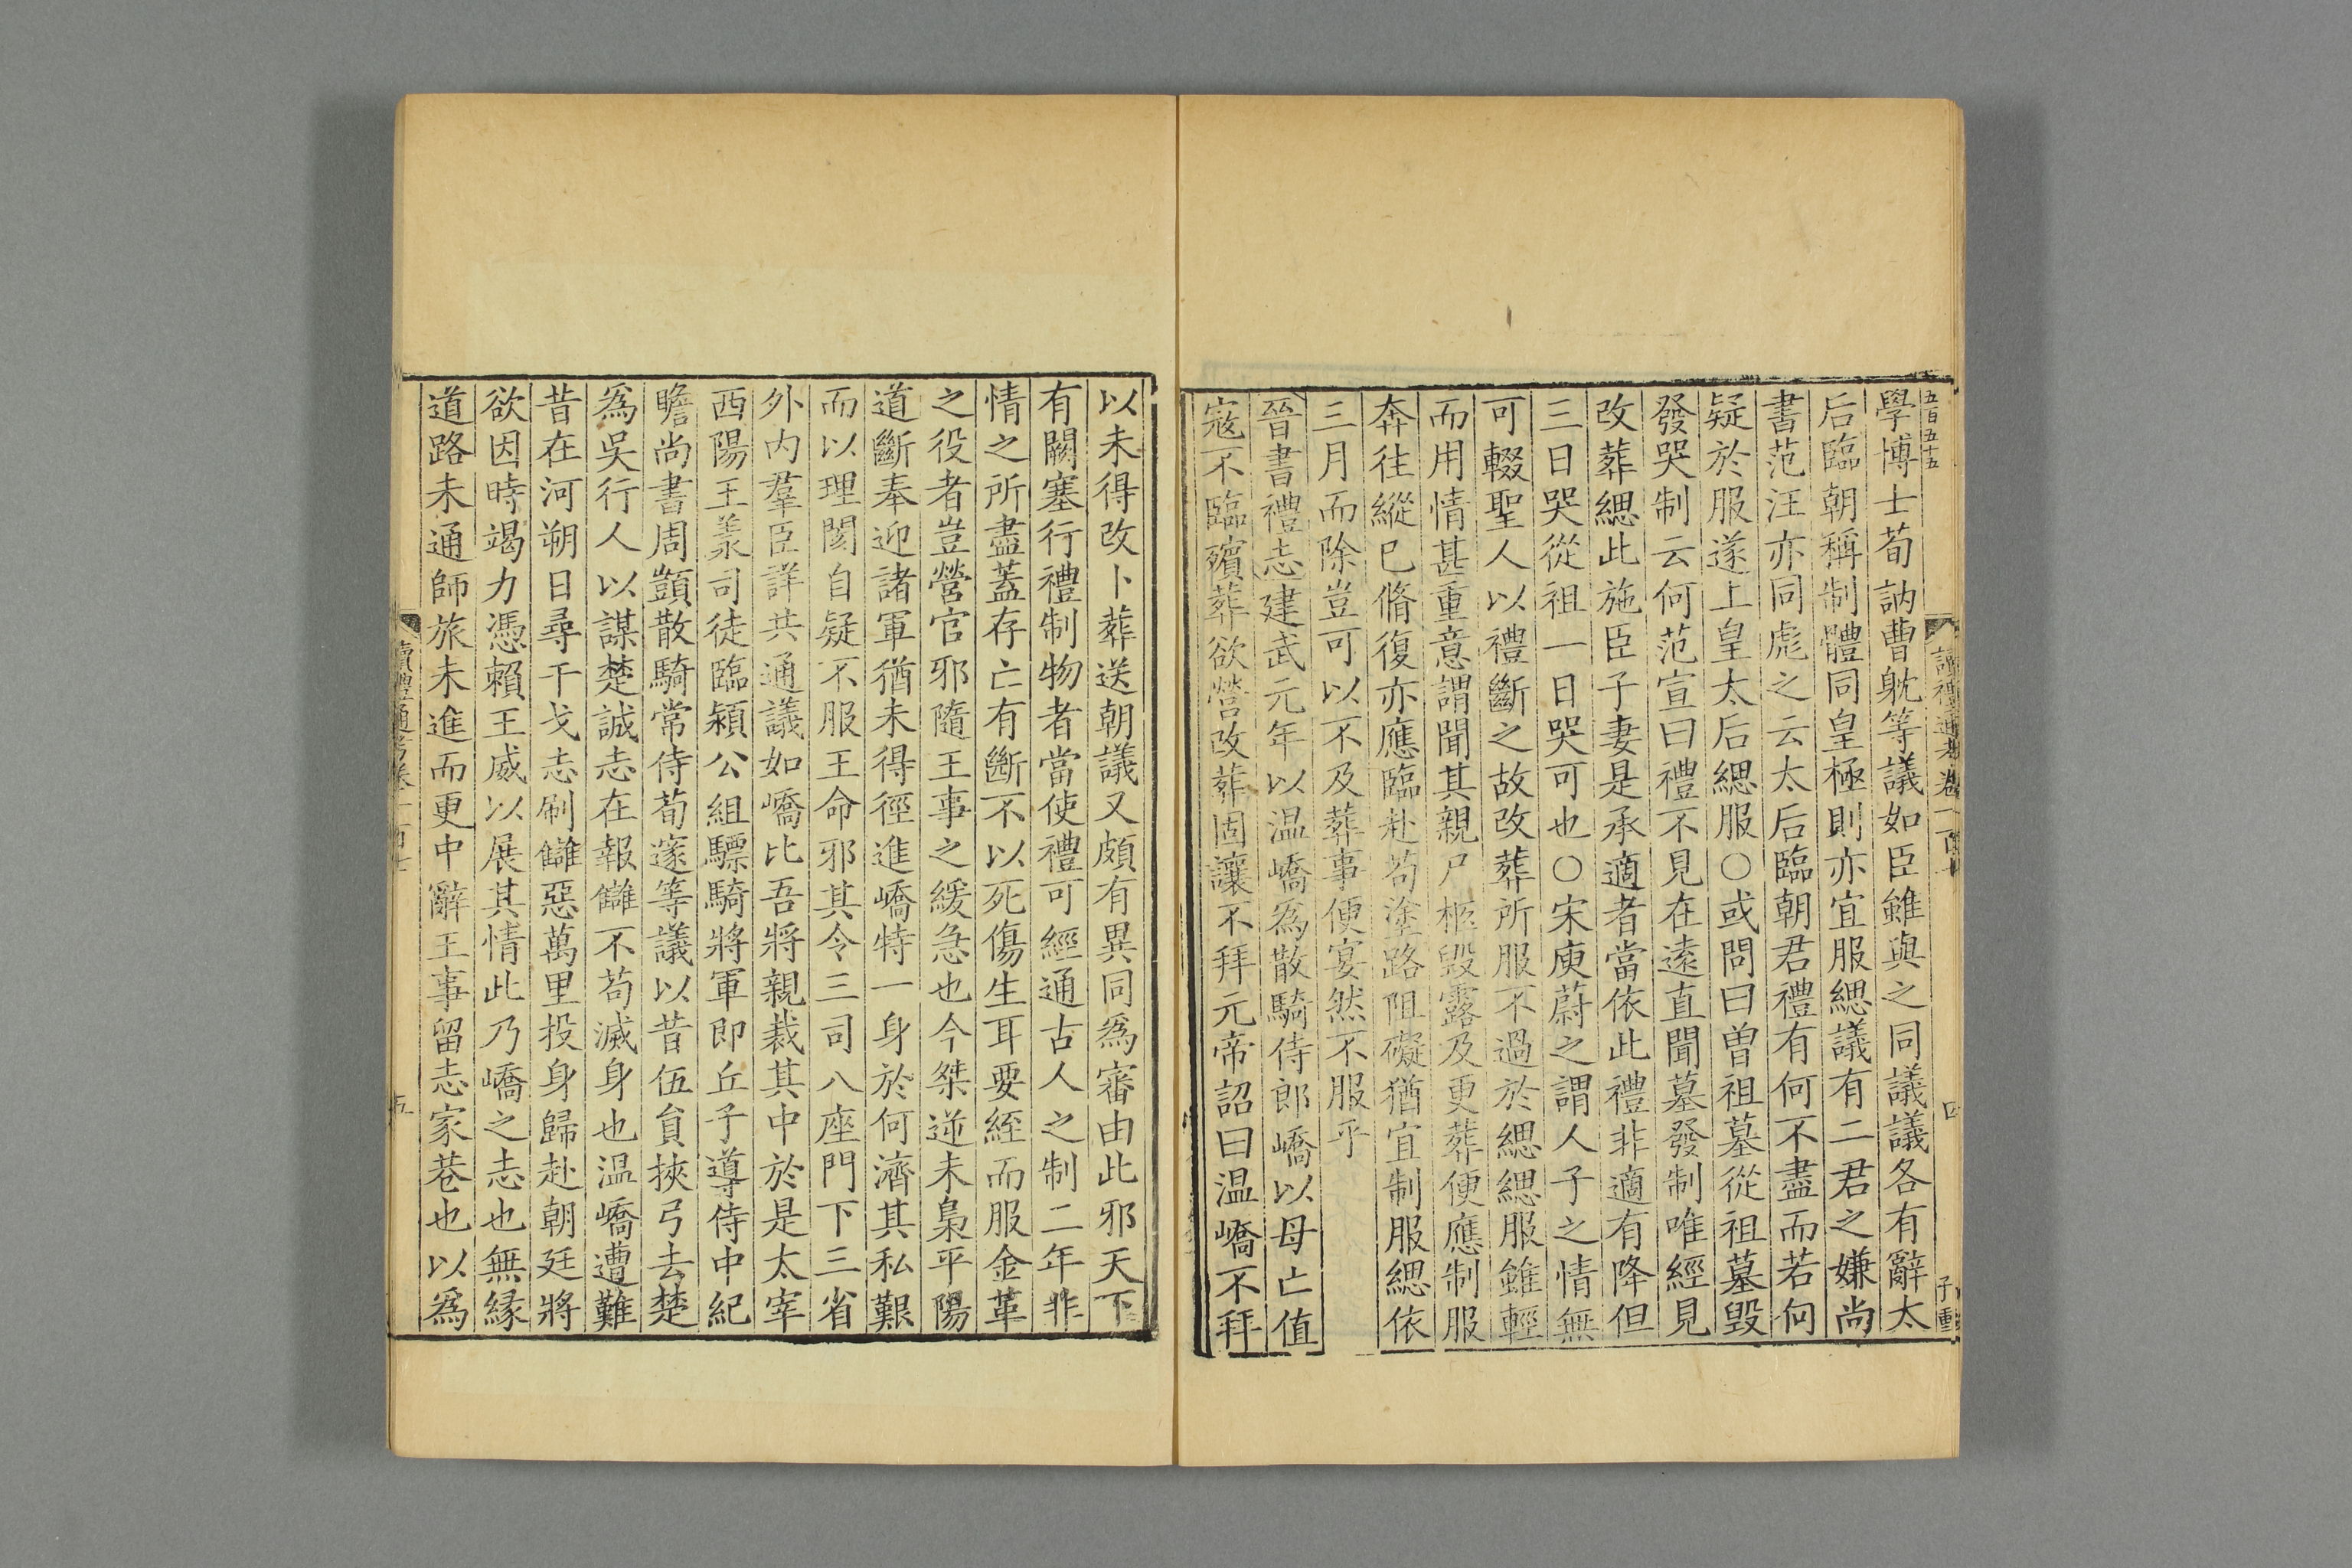 五百五十五
學博士荀訥曹躭等議如臣雖與之同議議各有辭太
后臨朝稱制體同皇極則亦宜服緦議有二君之嫌尚
書范汪亦同彪之云太后臨朝君禮有何不盡而若何
疑於服遂上皇太后緦服○或問曰曾祖墓從祖墓毀
發哭制云何范宣曰禮不見在遠直聞墓發制唯經見
改葬緦此施臣子妻是承適者當依此禮非適有降但
三日哭從祖一日哭可也○宋庾蔚之謂人子之情無
可輟聖人以禮斷之故改葬所服不過於緦緦服雖輕
而用情甚重意謂聞其親尸柩毀露及更葬便應制服
奔往縱已脩復亦應臨赴苟塗路阻礙猶宜制服緦依
三月而除豈可以不及葬事便宴然不服乎
晉書禮志建武元年以温嶠為散騎侍郎嶠以母亡值
寇不臨殯葬欲營改葬固讓不拜元帝詔曰温嶠不拜
以未得改卜葬送朝議又頗有異同為審由此邪天下
有闕塞行禮制物者當使禮可經通古人之制二年非
情之所盡蓋存亡有斷不以死傷生耳要絰而服金革
之役者豈營官邪隨王事之緩急也今桀逆未梟平陽
道斷奉迎諸軍猶未得徑進嶠特一身於何濟其私艱
而以理閡自疑不服王命邪其令三司八座門下三省
外內羣臣詳共通議如嶠比吾將親裁其中於是太宰
西陽王羕司徒臨潁公組驃騎將軍即丘子導侍中紀
瞻尚書周顗散騎常侍荀邃等議以昔伍員挾弓去楚
為吳行人以謀楚誠志在報讎不苟滅身也温嶠遭難
昔在河朔日尋干戈志刷讎惡萬里投身歸赴朝廷將
欲因時竭力憑賴王威以展其情此乃嶠之志也無縁
道路未通師旅未進而更中辭王事留志家巷也以為
讀禮通考卷一百
四
子重
五